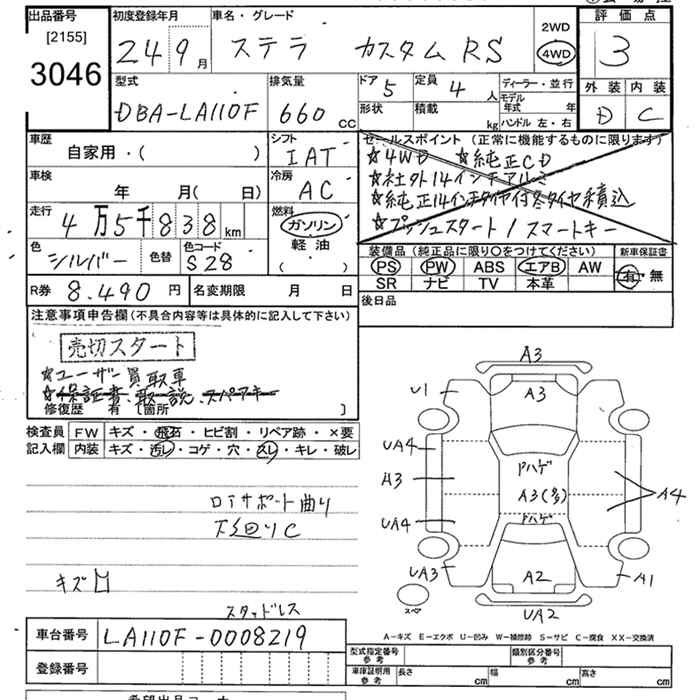 出品番号
[2155]
3046
初度登録年月
24 9月
車名・グレード
ステラ カスタム RS
2WD
4WD
評価点
3
外装 内装
D C
型式
DBA-LA110F
排気量
660 cc
ドア 5
定員 4 人
形状
積載 kg
ディーラー・並行
モデル年式 年
ハンドル 左・右
車歴
自家用・( )
シフト
IAT
セールスポイント (正常に機能するものに限ります)
☆4WD ☆純正CD
☆社外14インチアルミ
☆純正14インチタイヤ付冬タイヤ積込
☆プッシュスタート/スマートキー
車検
年 月( 日)
冷房
AC
走行
4万5千838km
燃料
ガソリン
軽油
( )
色
シルバー
色替
色コード
S28
装備品 (純正品に限り○をつけてください)
PS PW ABS エアB AW
SR ナビ TV 本革
新車保証書
有・無
R券 8.490 円
名変期限 月 日
後日品
注意事項申告欄 (不具合内容等は具体的に記入して下さい)
売切スタート
☆ユーザー買取車
☆保証書、取説、スペアキー
修復歴 有 [箇所 ]
検査員記入欄
FW キズ・飛石・ヒビ割・リペア跡・×要
内装 キズ・汚レ・コゲ・穴・スレ・キレ・破レ
ロアサポート曲り
下廻りC
キズ
スタッドレス
A3
U1
A3
UA4
Pハゲ
A3
A3(多)
A4
UA4
Pハゲ
UA3
A2
A1
スペア
UA2
車台番号
LA110F-0008219
登録番号
A-キズ E-エクボ U-凹み W-補修跡 S-サビ C-腐食 XX-交換済
型式指定番号 参考
類別区分番号 参考
車庫証明用 参考
長さ cm
幅 cm
高さ cm